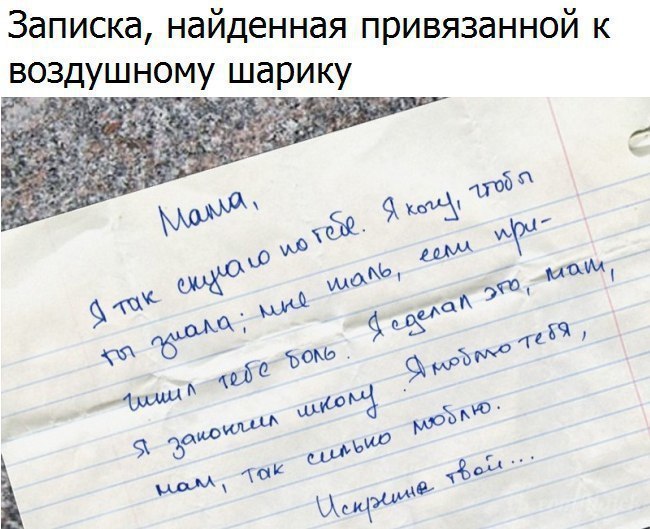 Записка, найденная привязанной к
воздушному шарику
Мама,
Я так скучаю по тебе. Я хочу, чтобы
ты знала; мне шаль, если при-
чинил тебе боль. Я сделал это, мам,
Я закончил школу. Я люблю тебя,
мам, так сильно люблю.
Искренне твой...